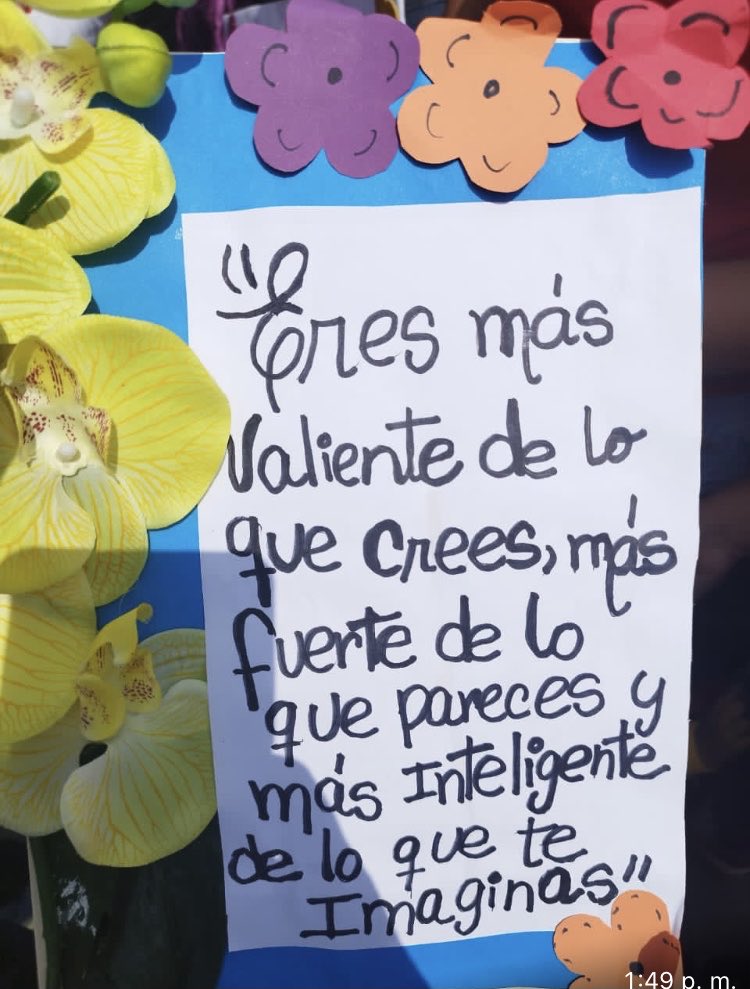 "Eres más
valiente de lo
que crees, más
fuerte de lo
que pareces y
más Inteligente
de lo que te
Imaginas"
1:49 p. m.